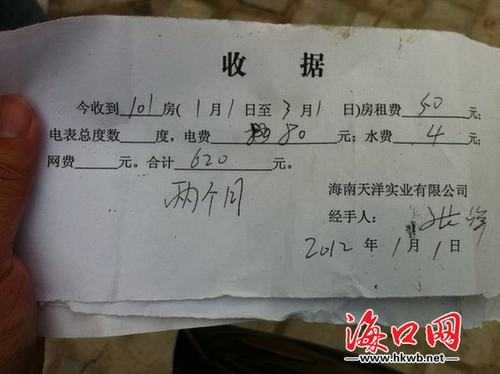 收 据
今收到101房(1月1日至3月1日)房租费50元;
电表总度数____度,电费80元;水费4元;
网费____元。合计620元。
两个月
海南天洋实业有限公司
经手人:
2012年1月1日
海口网
www.hkwb.net